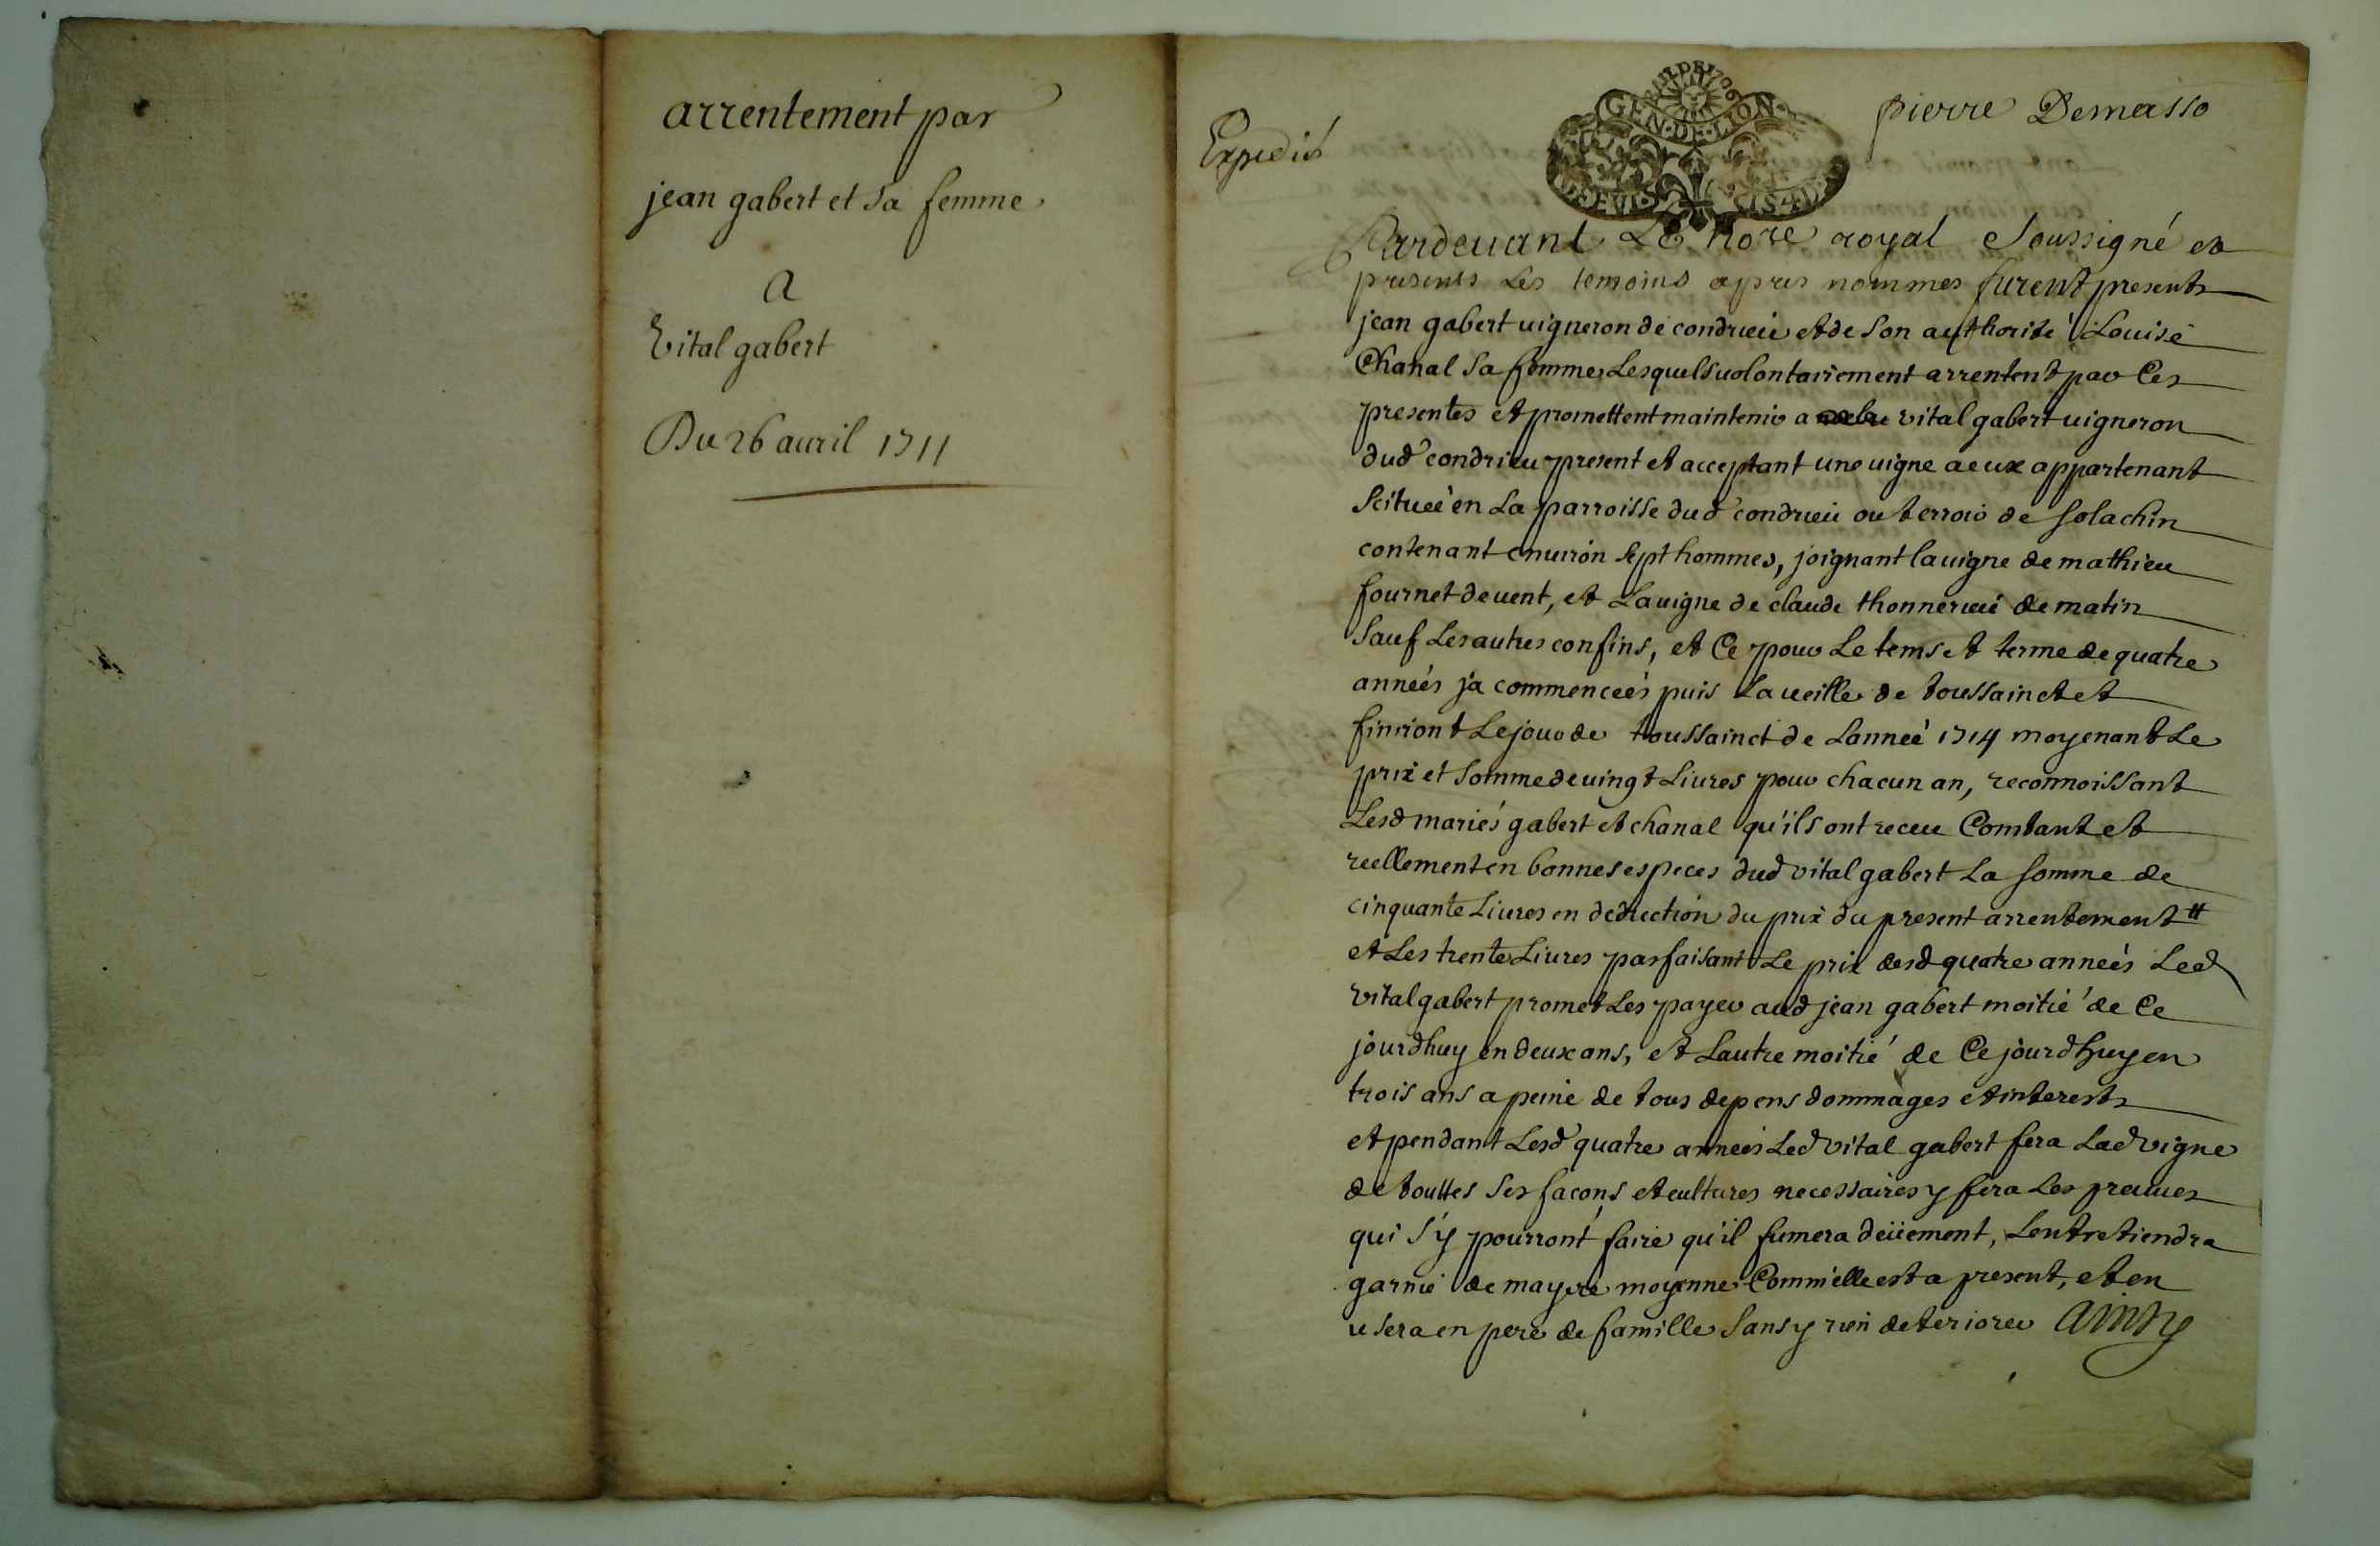 arrentement par
jean gabert et sa femme
a
Vital gabert
Du 26 auril 1711
Expedié
GEN·DE·LION
pierre Demasso
Pardeuant Le nore royal soussigné et
presents Les temoins apres nommes furent presents
jean gabert uigneron de condrieu et de son authorité Louise
Chanal sa femme Lesquels uolontairement arrentent par Ces
presentes et promettent maintenir a vital gabert uigneron
dud condrieu present et acceptant une uigne a eux appartenant
scituée en La parroisse dud condrieu ou terroir de solachin
contenant enuiron sept hommes, joignant la uigne de mathieu
fournet de uent, et La uigne de claude de matin
sauf Les autres confins, et Ce pour Le tems et terme de quatre
années ja commencées puis La ueille de toussainct et
finiront Le jour de toussainct de Lanneé 1714 moyenant Le
prix et somme de uingt Liures pour chacun an, reconnoissant
Lesd mariés gabert et chanal qu'ils ont receu Comtant et
reellement en bonnes especes dud vital gabert La somme de
cinquante Liures en deduction du prix du present arrentement
et Les trente Liures parfaisant Le prix desd quatre années Led
vital gabert promet Les payer aud jean gabert moitié de Ce
jourdhuy en deux ans, et Lautre moitié de Ce jourdhuy en
trois ans a peine de tous depens dommages et interests
et pendant Lesd quatre années Led vital gabert fera Lad vigne
de touttes ses facons et cultures necessaires y fera Les preuues
qui s'y pourront faire qu'il fumera deüement, Lentretiendra
garnie de mayere moyenne Comm'elle est a present, et en
usera en pere de famille sans y rien deteriorer